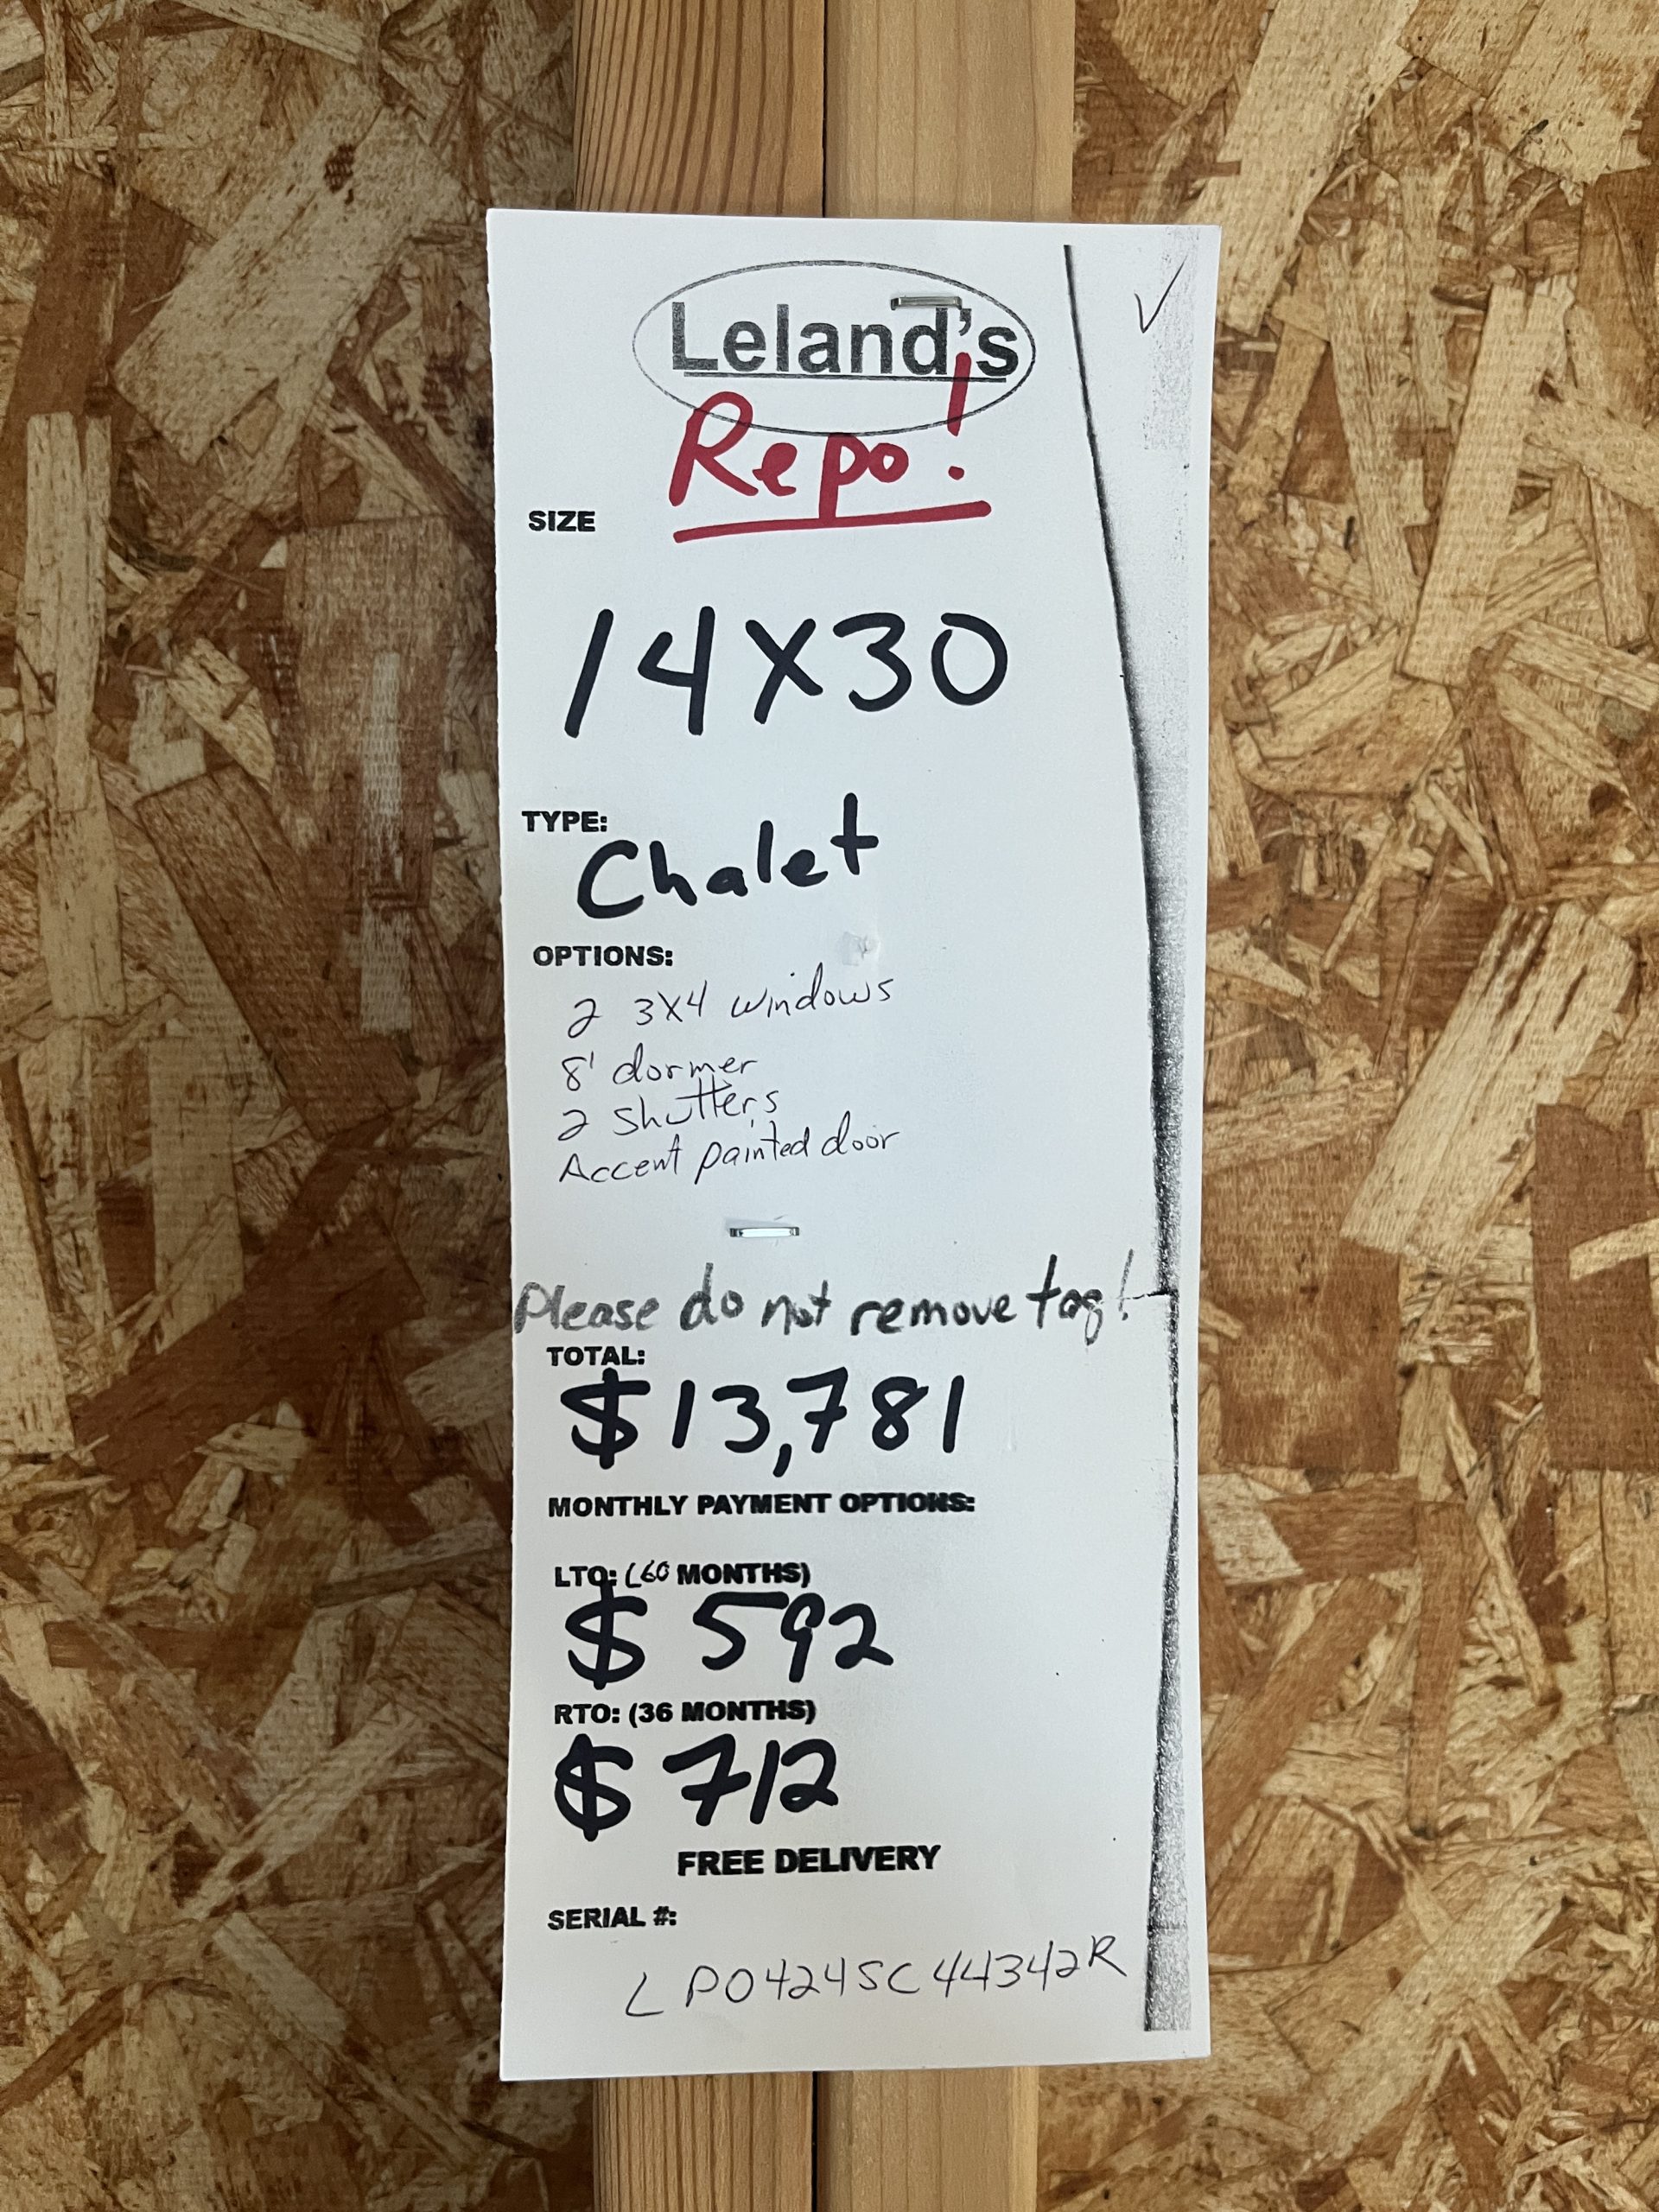 Leland's
Repo!
SIZE
14X30
TYPE:
Chalet
OPTIONS:
2 3X4 windows
8' dormer
2 Shutters
Accent painted door
Please do not remove tag!
TOTAL:
$13,781
MONTHLY PAYMENT OPTIONS:
LTO: (60 MONTHS)
$ 592
RTO: (36 MONTHS)
$ 712
FREE DELIVERY
SERIAL #:
LP0424SC44342R